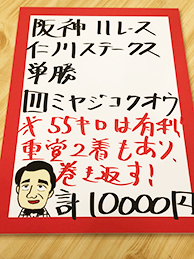 阪神11レース
仁川ステークス
単勝
11ミヤジコクオウ
55キロは有利
重賞2着もあり、
巻き返す!
計10000円